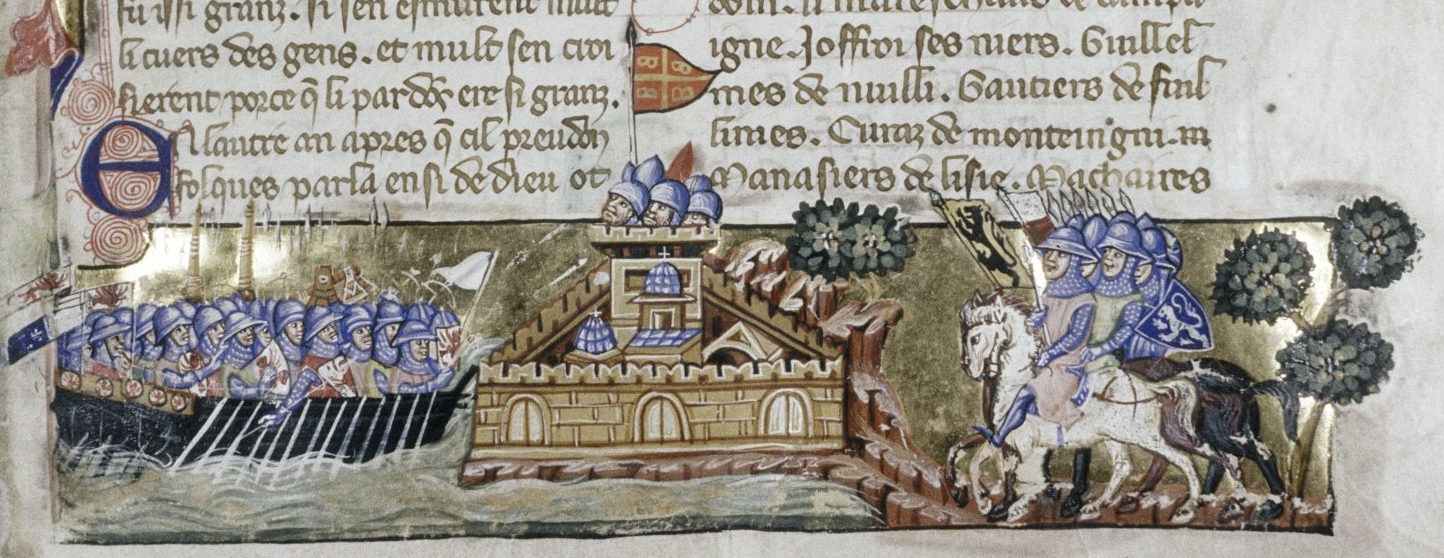 fu issi granz. si sen esmurent mult
li cuers des gens. et mult sen croi
sierent porce q̃ li pardõs ere si granz.
En lautre an apres q̃ cil preudõ
folques parla ensi de dieu ot
doin. li mareschaus de campa
igne. Joffroi ses niers. Guillel
mes de nuilli. Gautiers de fuil
lines. Euraz de monteingni.
Manasiers de lisle. Machaires